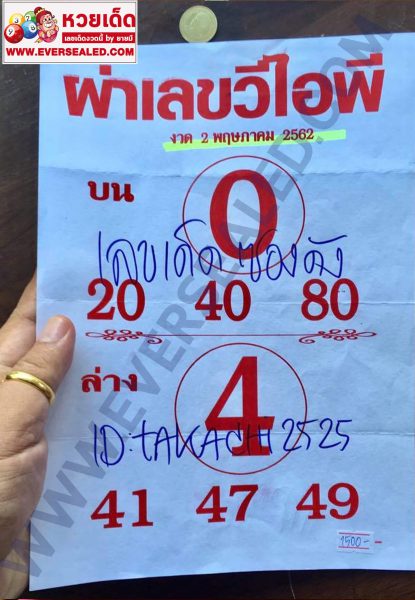 หวยเด็ด
เลขเด็ดงวดนี้ by ชายมี่
WWW.EVERSEALED.COM
ผ่าเลขวีไอพี
งวด 2 พฤษภาคม 2562
บน
0
เลขเด็ดซองดัง
20 40 80
ล่าง
4
ID:TAKACHI2525
41 47 49
1500-
WWW.EVERSEALED.COM